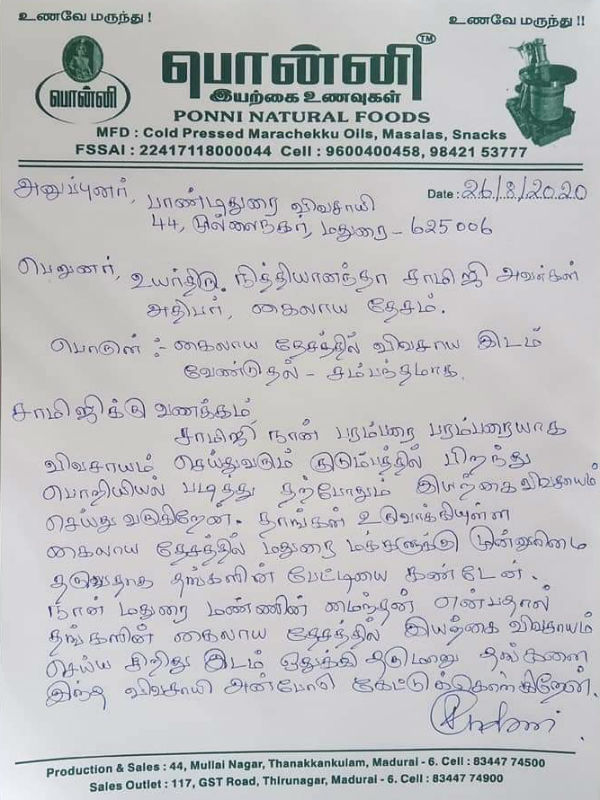 உணவே மருந்து !
உணவே மருந்து !!
பொன்னி
பொன்னி TM
இயற்கை உணவுகள்
PONNI NATURAL FOODS
MFD : Cold Pressed Marachekku Oils, Masalas, Snacks
FSSAI : 22417118000044 Cell : 9600400458, 98421 53777
Date : 26/8/2020
அனுப்புனர்,
பாண்டிதுரை விவசாயி
44, முல்லைநகர், மதுரை - 625006
பெறுனர்,
உயர்திரு. நித்தியானந்தா சாமிஜி அவர்கள்
அதிபர், கைலாய தேசம்.
பொருள் :- கைலாய தேசத்தில் விவசாய இடம்
வேண்டுதல் - சம்பந்தமாக.
சாமிஜிக்கு வணக்கம்
சாமிஜி நான் பரம்பரை பரம்பரையாக
விவசாயம் செய்துவரும் குடும்பத்தில் பிறந்து
பொறியியல் படித்து தற்போதும் இயற்கை விவசாயம்
செய்து வருகிறேன். தாங்கள் உருவாக்கியுள்ள
கைலாய தேசத்தில் மதுரை மக்களுக்கு முன்னுரிமை
தருவதாக தங்களின் பேட்டியை கண்டேன்.
நான் மதுரை மண்ணின் மைந்தன் என்பதால்
தங்களின் கைலாய தேசத்தில் இயற்கை விவசாயம்
செய்ய சிறிது இடம் ஒதுக்கி தருமாறு தங்களை
இந்த விவசாயி அன்போடு கேட்டுக்கொள்கிறேன்.
Production & Sales : 44, Mullai Nagar, Thanakkankulam, Madurai - 6. Cell : 83447 74500
Sales Outlet : 117, GST Road, Thirunagar, Madurai - 6. Cell : 83447 74900